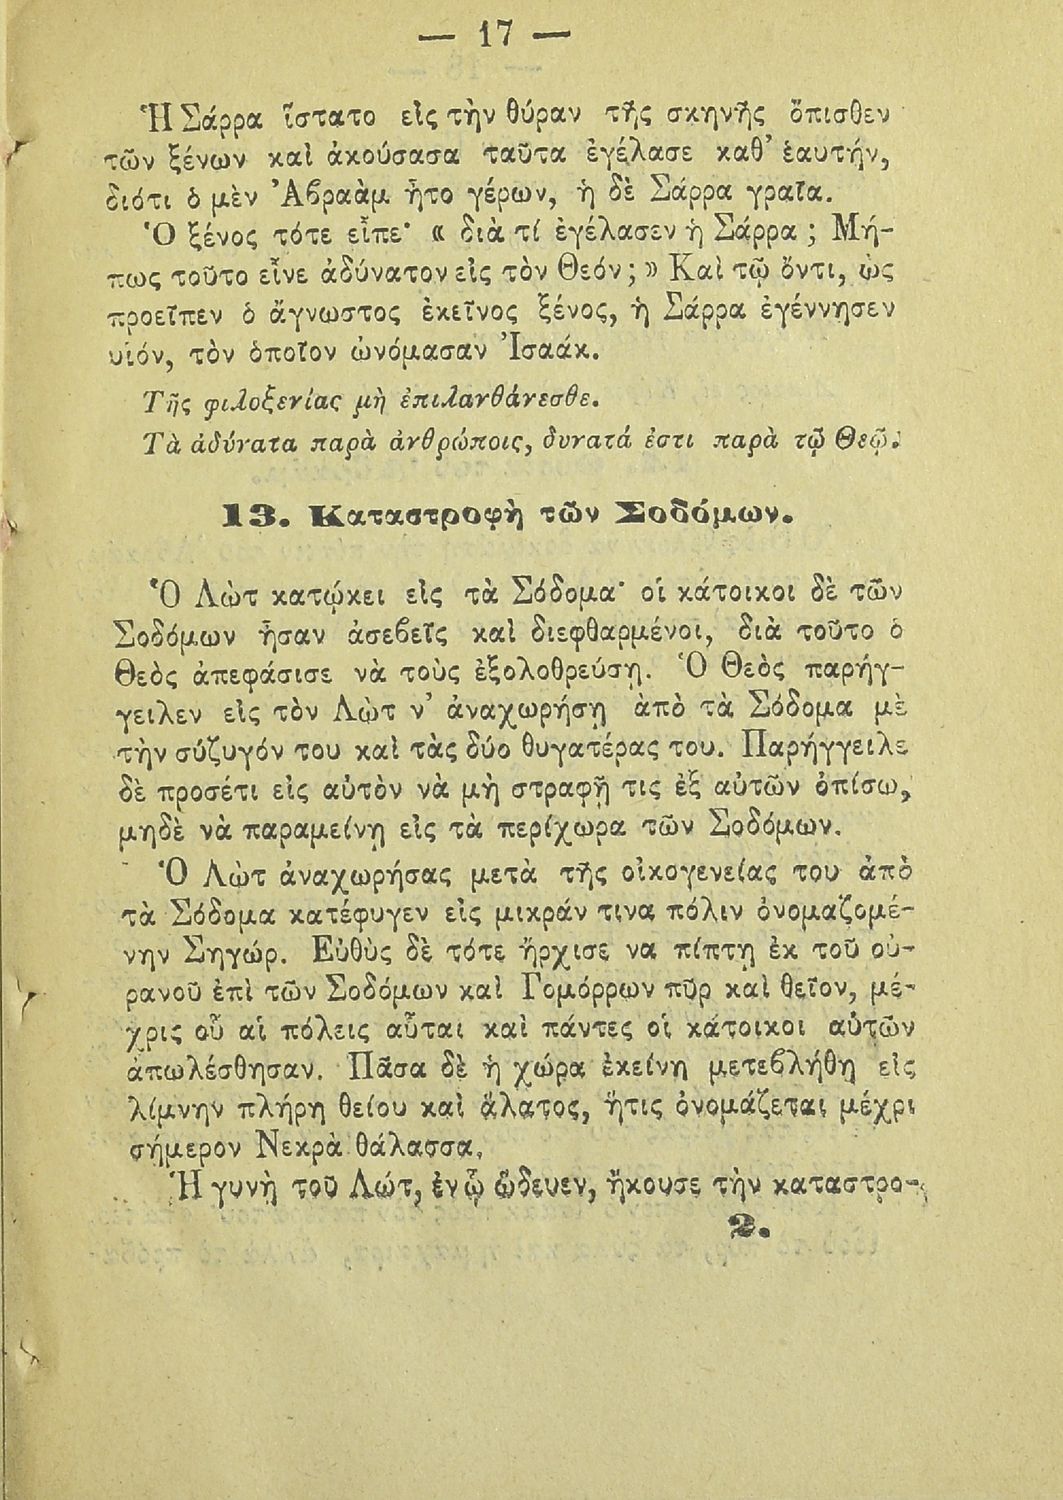 — 17 —
Ἡ Σάρρα ἵστατο εἰς τὴν θύραν τῆς σκηνῆς ὄπισθεν
τῶν ξένων καὶ ἀκούσασα ταῦτα ἐγέλασε καθ’ ἑαυτήν,
διότι ὁ μὲν Ἀβραὰμ ἦτο γέρων, ἡ δὲ Σάρρα γραῖα.
Ὁ ξένος τότε εἶπε· « διὰ τί ἐγέλασεν ἡ Σάρρα ; Μή-
πως τοῦτο εἶνε ἀδύνατον εἰς τὸν Θεόν ; » Καὶ τῷ ὄντι, ὡς
προεῖπεν ὁ ἄγνωστος ἐκεῖνος ξένος, ἡ Σάρρα ἐγέννησεν
υἱόν, τὸν ὁποῖον ὠνόμασαν Ἰσαάκ.
Τῆς φιλοξενίας μὴ ἐπιλανθάνεσθε.
Τὰ ἀδύνατα παρὰ ἀνθρώποις, δυνατά ἐστι παρὰ τῷ Θεῷ.
13. Καταστροφὴ τῶν Σοδόμων.
Ὁ Λὼτ κατῴκει εἰς τὰ Σόδομα· οἱ κάτοικοι δὲ τῶν
Σοδόμων ἦσαν ἀσεβεῖς καὶ διεφθαρμένοι, διὰ τοῦτο ὁ
Θεὸς ἀπεφάσισε νὰ τοὺς ἐξολοθρεύσῃ. Ὁ Θεὸς παρήγ-
γειλεν εἰς τὸν Λὼτ ν’ ἀναχωρήσῃ ἀπὸ τὰ Σόδομα μὲ
τὴν σύζυγόν του καὶ τὰς δύο θυγατέρας του. Παρήγγειλε
δὲ προσέτι εἰς αὐτὸν νὰ μὴ στραφῇ τις ἐξ αὐτῶν ὀπίσω,
μηδὲ νὰ παραμείνῃ εἰς τὰ περίχωρα τῶν Σοδόμων.
Ὁ Λὼτ ἀναχωρήσας μετὰ τῆς οἰκογενείας του ἀπὸ
τὰ Σόδομα κατέφυγεν εἰς μικράν τινα πόλιν ὀνομαζομέ-
νην Σηγώρ. Εὐθὺς δὲ τότε ἤρχισε να πίπτῃ ἐκ τοῦ οὐ-
ρανοῦ ἐπὶ τῶν Σοδόμων καὶ Γομόρρων πῦρ καὶ θεῖον, μέ-
χρις οὗ αἱ πόλεις αὗται καὶ πάντες οἱ κάτοικοι αὐτῶν
ἀπωλέσθησαν. Πᾶσα δὲ ἡ χώρα ἐκείνη μετεβλήθη εἰς
λίμνην πλήρη θείου καὶ ἅλατος, ἥτις ὀνομάζεται μέχρι
σήμερον Νεκρὰ θάλασσα.
Ἡ γυνὴ τοῦ Λώτ, ἐνῷ ὥδευεν, ἤκουσε τὴν καταστρο-
2.